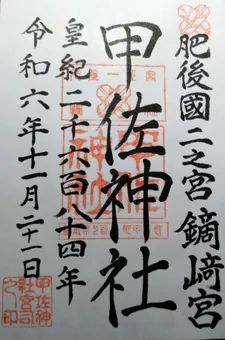 肥後國二之宮 鏑﨑宮
甲佐神社
皇紀二千六百八十四年
令和六年十一月二十一日
甲佐神
社宮司
之印